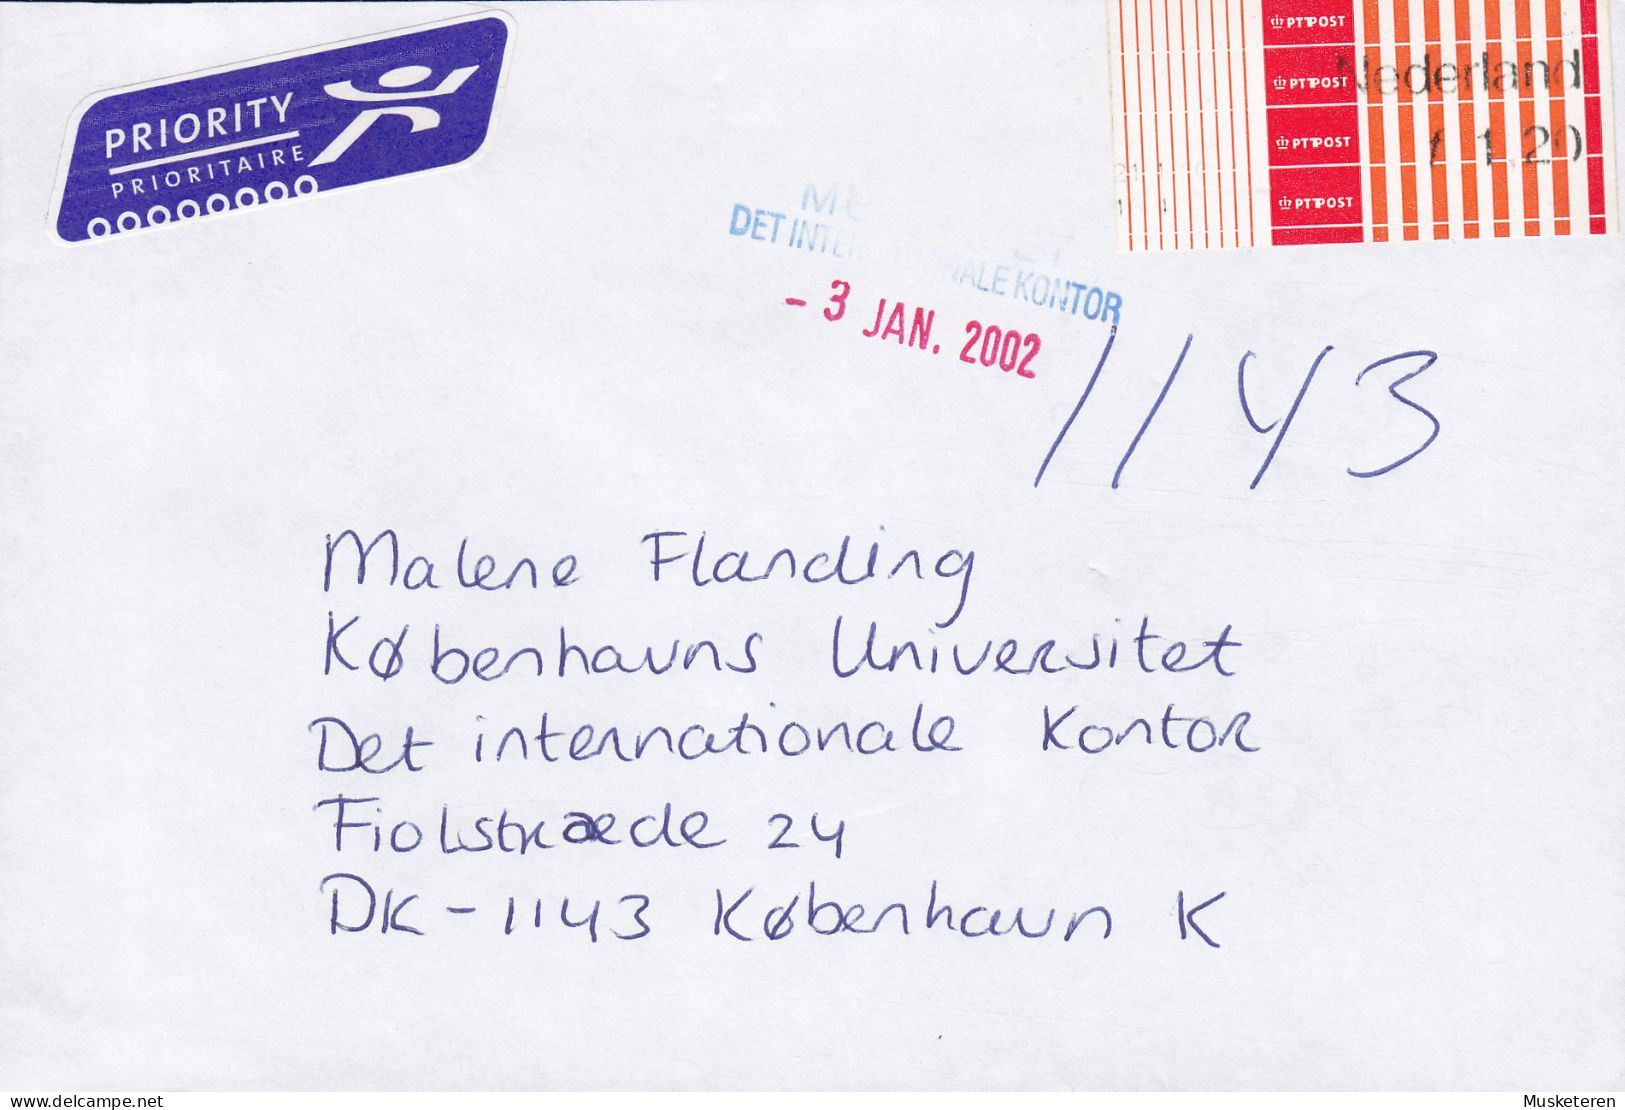 PRIORITY
PRIORITAIRE
PTT POST
PTT POST
PTT POST
PTT POST
Nederland
f 1.20
DET INTERNATIONALE KONTOR
- 3 JAN. 2002
1143
Malene Flanding
Københavns Universitet
Det internationale Kontor
Fiolstræde 24
DK - 1143 København K
delcampe.net
Musketeren